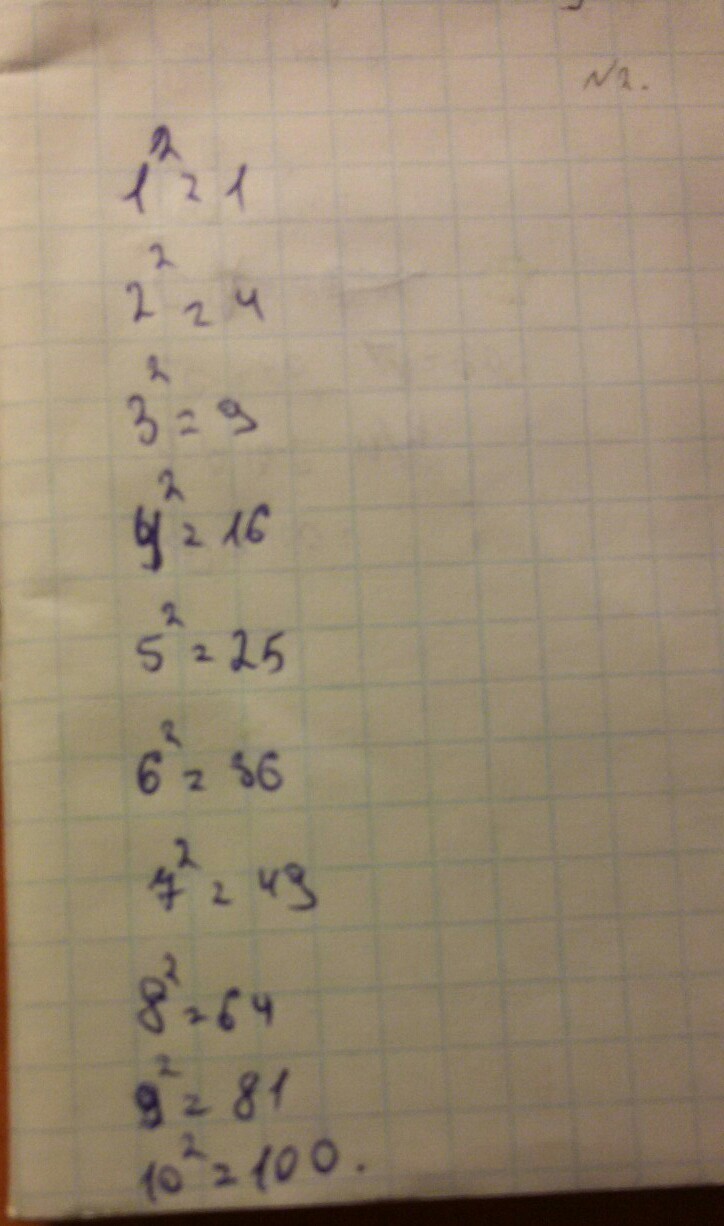 №2.
1² = 1
2² = 4
3² = 9
4² = 16
5² = 25
6² = 36
7² = 49
8² = 64
9² = 81
10² = 100.